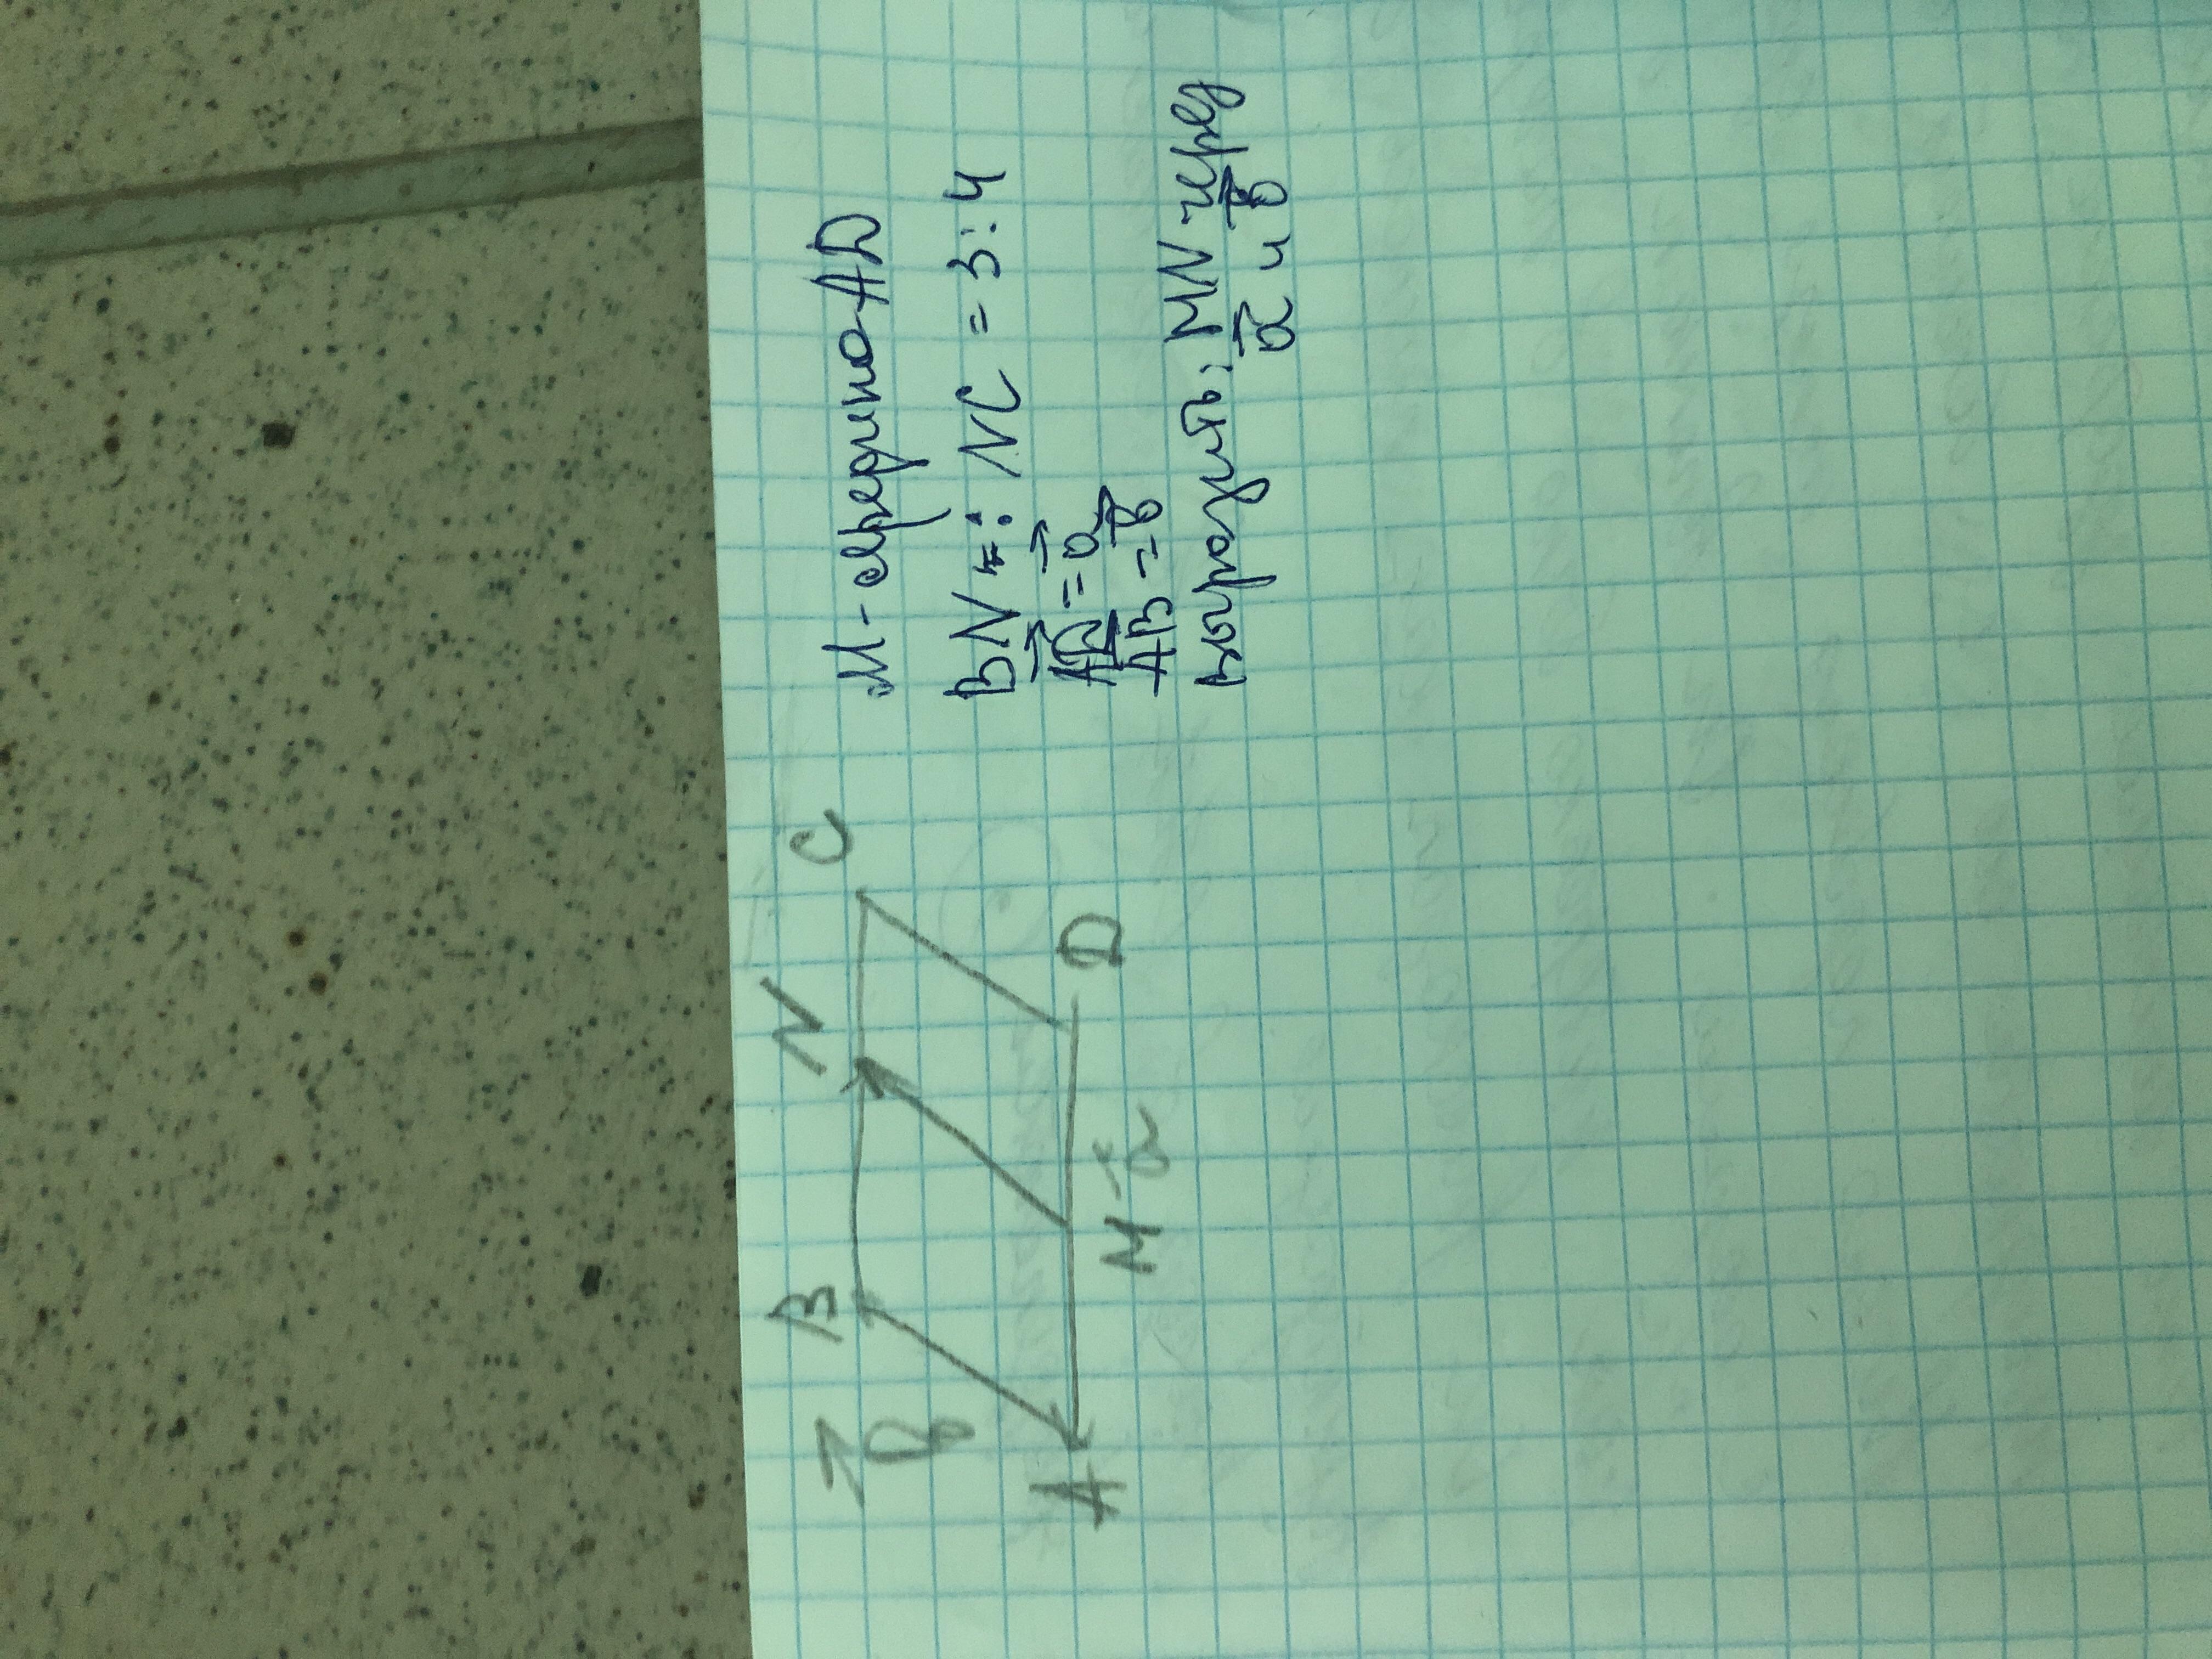 B N C
b
A M a D
M - середина AD
BN : NC = 3:4
AD = a
AB = b
выразить: MN через
a и b